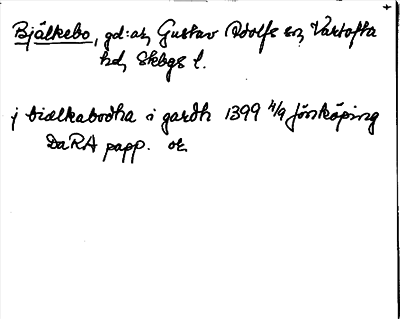 Bjälkebo, gd: ar, Gustav Adolfs sn, Vartofta
hd, Skbgs l.
j biælkabodha i gardh 1399 4/9 Jönköping
DaRA papp. or.